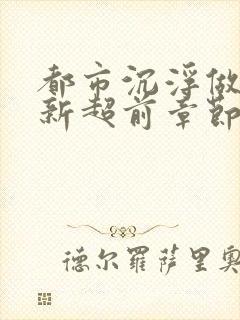 都市沉浮做
新超前章节
德尔罗萨里奥